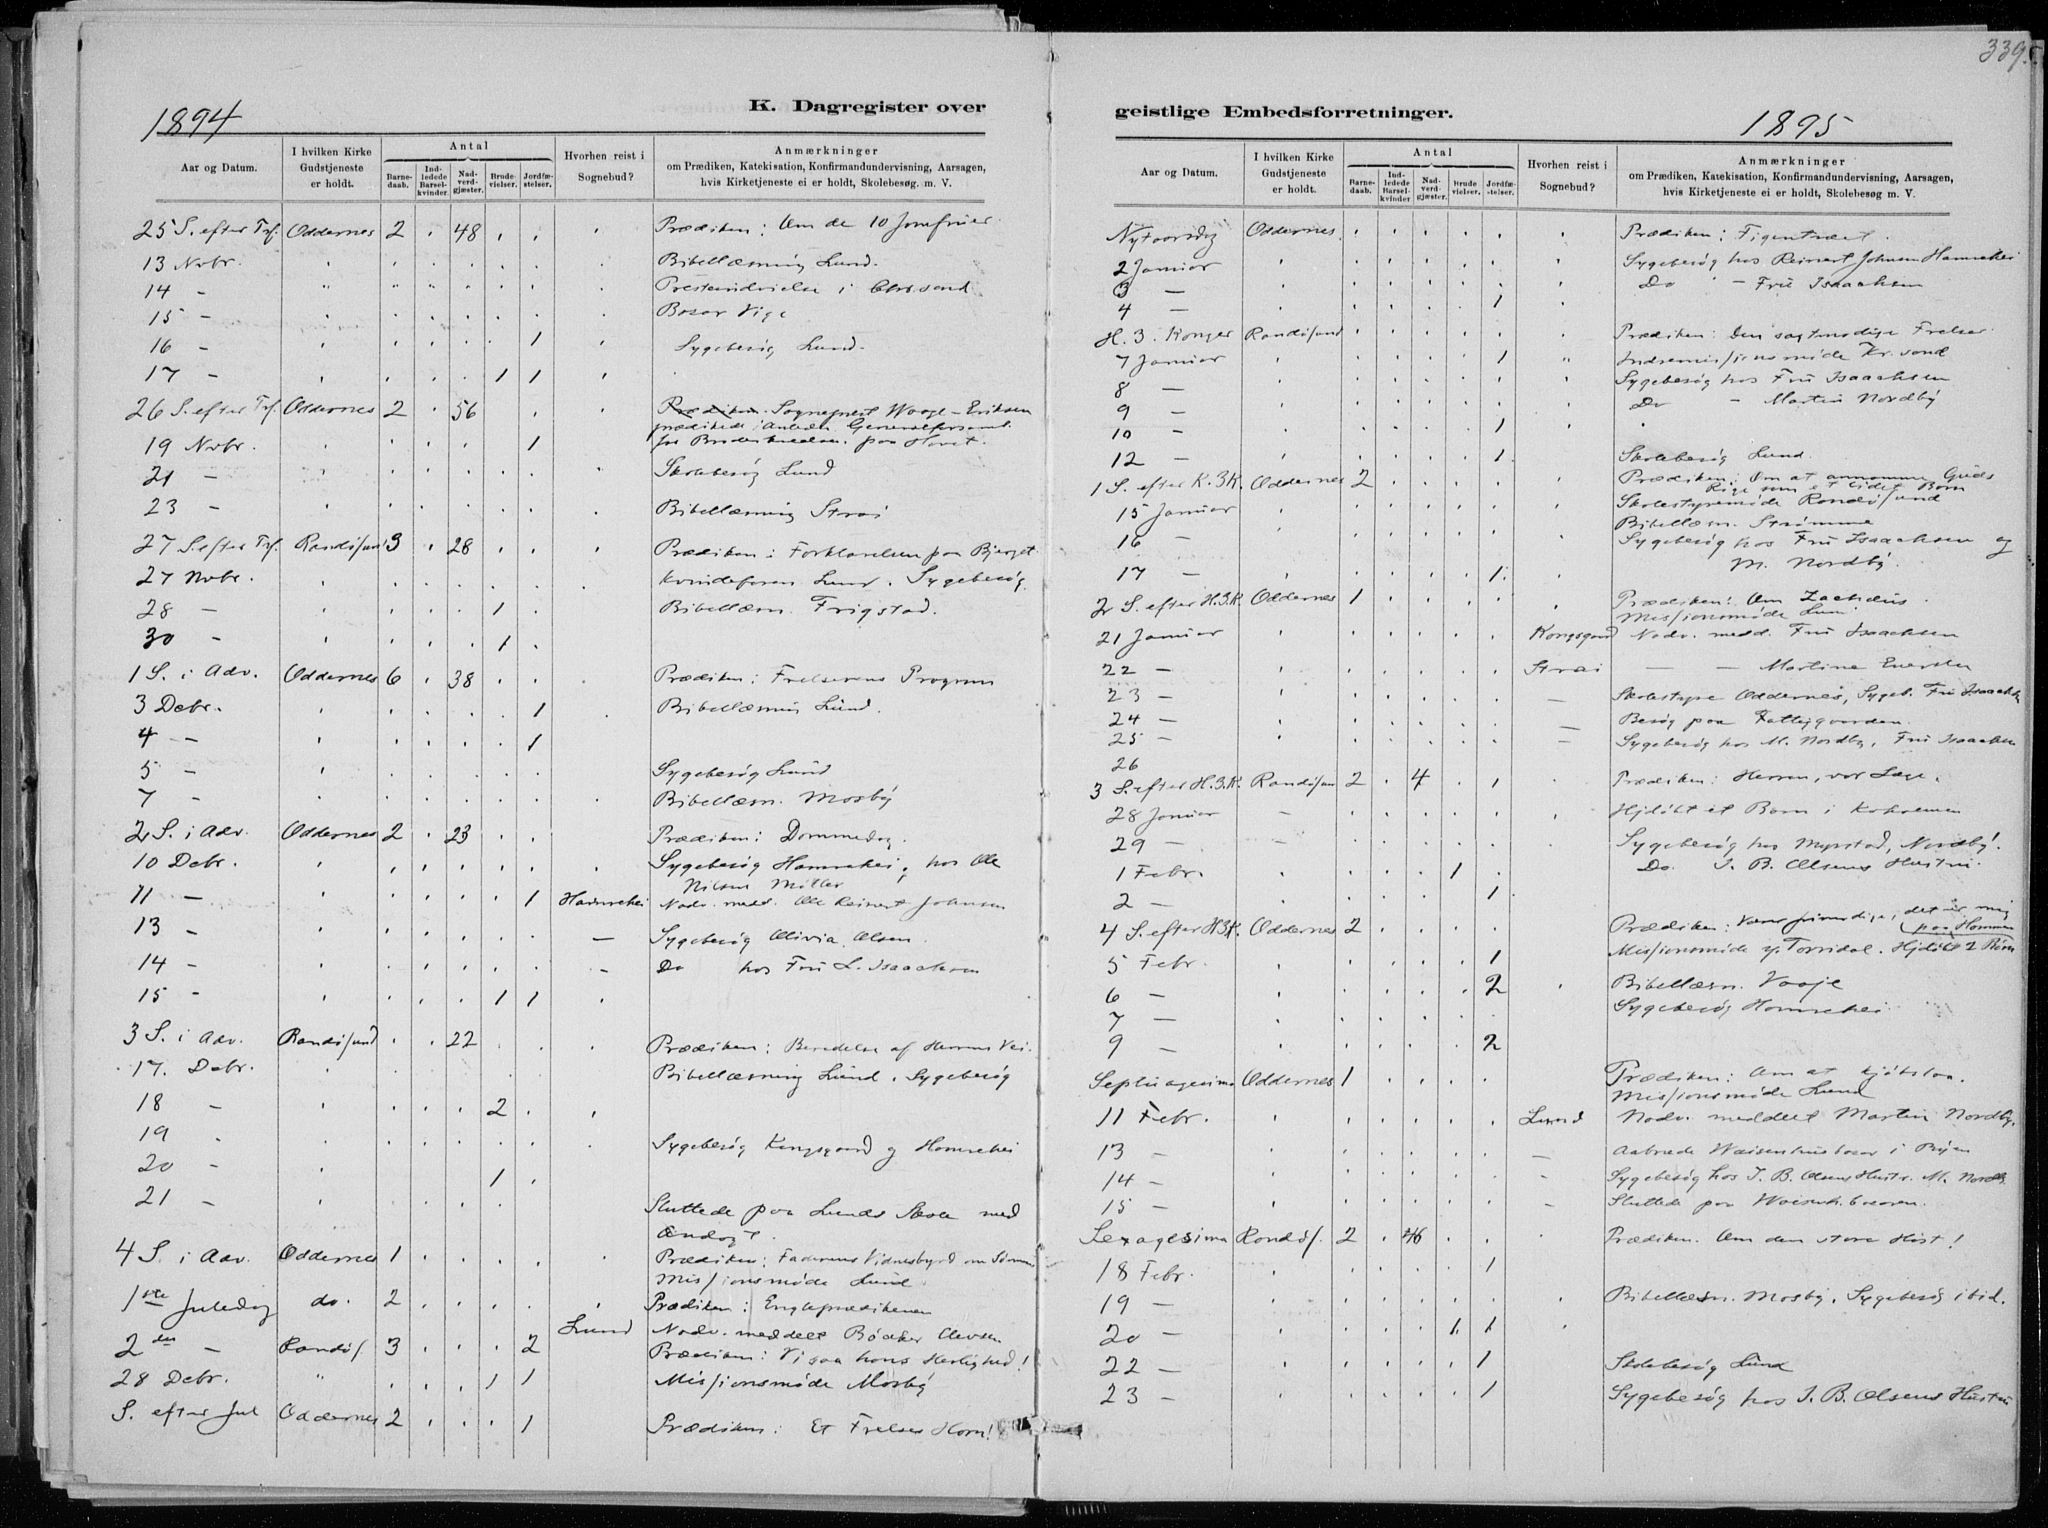 339.
K. Dagregister over
1894
Aar og Datum. I hvilken Kirke Gudstjeneste er holdt. Antal Hvorhen reist i Sognebud? Anmærkninger
Barnedaab. Indledede Barselkvinder Nadverdgjæster. Brudevielser. Jordfæstelser. om Prædiken, Katekisation, Konfirmandundervisning, Aarsagen,
hvis Kirketjeneste ei er holdt, Skolebesøg. m. V.
25 S. efter Trf. Oddernes 2 . 48 . . Prædiken: Om de 10 Jomfruer
13 Nvbr. Bibellæsning Lund.
14 - Presteindvielse i Chr.sand
15 - Basar Vige
16 - 1 Sygebesøg Lund.
17 - 1 1
26 S. efter Trf. Oddernes 2 . 56 Prædiken. Sogneprest Waage-Eriksen
prædikede i Anledn. Generalforsaml.
19 Nvbr. 1 paa Hovet.
21 - Skolebesøg Lund
23 - Bibellæsning Strai
27 S. efter Trf. Randøsund 3 . 28 Prædiken: Forklarelsen paa Bjerget
27 Nvbr. Kvindeforen Lund. Sygebesøg
28 - 1 Bibellæsn. Frigstad.
30 - 1
1 S. i Adv. Oddernes 6 . 38 Prædiken: Frelserens Program
3 Debr. 1 Bibellæsning Lund.
4 - 1
5 - Sygebesøg Lund
7 - Bibellæsn. Mosby
2 S. i Adv. Oddernes 2 . 23 Prædiken: Dommedag
10 Debr. Sygebesøg Hamrehei, hos Ole
Nilsen Møller
11 - 1 Hamrehei Nadv. medd. Ole Reinert Johnsen
13 - Sygebesøg Olivia Olsen.
14 - Do hos Fru L. Isaachsen
15 - 1 1
3 S. i Adv. Randøsund . . 22 Prædiken: Beredelse af Herrens Vei.
17. Debr. Bibellæsning Lund. Sygebesøg
18 - 2
19 . Sygebesøg Kongsgaard og Hamrehei
20 - 1
21 - Sluttede paa Lunds Skole med
Andagt.
4 S. i Adv. Oddernes 1 Prædiken: Faderens Vidnesbyrd om Sønnen
Missionsmøde Lund
1ste Juledag do. 2 Prædiken: Engleprædikenen
Lund Nadv. meddelt Bødker
2den - Randøs 3 2 Prædiken: Vi saa hans Herlighed!
28 Debr. 1 1 Missionsmøde Mosby
S. efter Jul Oddernes 2 1 Prædiken: Et Frelses Horn!
geistlige Embedsforretninger.
1895
Aar og Datum. I hvilken Kirke Gudstjeneste er holdt. Antal Hvorhen reist i Sognebud? Anmærkninger
Barnedaab. Indledede Barselkvinder Nadverdgjæster. Brudevielser. Jordfæstelser. om Prædiken, Katekisation, Konfirmandundervisning, Aarsagen,
hvis Kirketjeneste ei er holdt, Skolebesøg m. V.
Nytaarsdag Oddernes Prædiken: Figentræet.
2 Januar Sygebesøg hos Reinert Johnsen Hamrehei
3 - Do - Fru Isaachsen
4 - 1
H. 3. Konger Randøsund Prædiken: Den sagtmodige Frelser
7 Januar 1 Indremissionsmøde Kr.sand
8 - Sygebesøg hos Fru Isaachsen
9 - Do - Martin Nordby
10 - 1
12 - 1 Skolebesøg Lund.
1 S. efter H.3K. Oddernes 2 Prædiken: Om at annamme Guds
Rige som et lidet Barn
15 Januar Skolestyremøde Randøsund
Bibellæsn. Strømme
16 - Sygebesøg hos Fru Isaachsen og
17 - 1 M. Nordby.
2 S. efter H.3.K. Oddernes 1 Prædiken: Om Zachæus.
Missionsmøde Lund
21 Januar Kongsgaard Nadv. medd. Fru Isaachsen
22 - Strai - - Martine
23 - - Skolestyre Oddernes, Sygeb. Fru Isaachsen
24 - Besøg paa Fattiggaarden.
25 - - Sygebesøg hos M. Nordby, Fru Isaachsen
26
3 S. efter H.3.K. Randøsun 2 . 4 . 1 Prædiken: Herren, vor Læge.
28 Januar - Hjdøbt et Barn i Korsholmen
29 - Sygebesøg hos Myrstad, Nordby.
1 Febr. 1 Do. J. B. Olsens Hustru.
2 - 1
4 S. efter H3K. Oddernes 2 Prædiken: Vær frimodige, det er mig
5 Febr. 1 Missionsmøde i Torridal. Hjdøbt 2 Børn paa Homme
6 - 2 Bibellæsn. Vaaje
7 - Sygebesøg Hamrehei
9 - 2
Septuagesima Oddernes 1 Prædiken: Om at kjøbslaa.
Missionsmøde Lund
11 Febr. Lund Nadv. meddelt Martin Nordby.
13 - - Aabnede Waisenhusbasar i Byen
14 - Sygebesøg hos J. B. Olsens Hustr. M. Nordb
15 - - Sluttede paa Waisenh.basaren.
Sexagesima Randøs. 2 . 46 Prædiken. Om den store Høst!
18 Febr. 1
19 - Bibellæsn. Mosby. Sygebesøg ibid.
20 - 1 1
22 - 1 Skolebesøg Lund
23 - 1 Sygebesøg hos J. B. Olsens Hustru